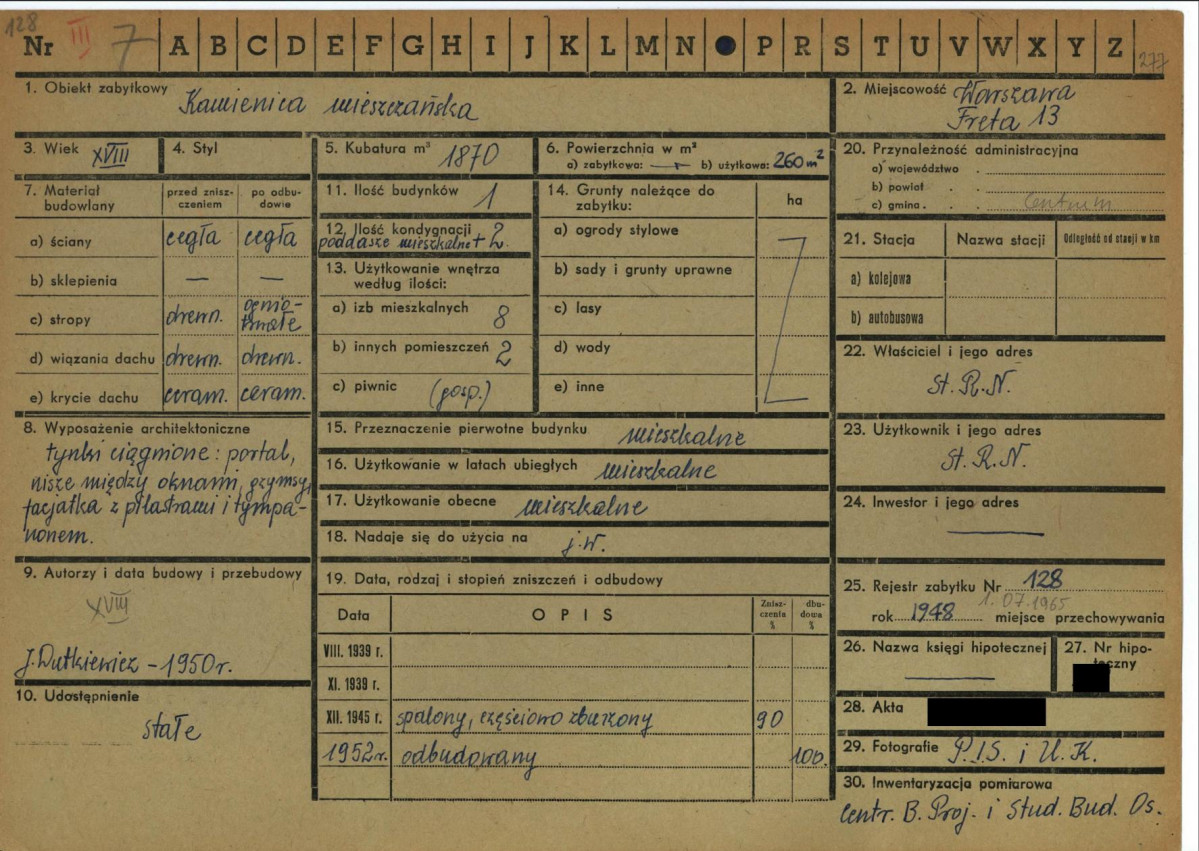 128
Nr III 7 A B C D E F G H I J K L M N P R S T U V W X Y Z 277
1. Obiekt zabytkowy Kamienica mieszczańska
2. Miejscowość Warszawa
Freta 13
3. Wiek XVIII
4. Styl
5. Kubatura m³ 1870
6. Powierzchnia w m²
a) zabytkowa: — b) użytkowa: 260 m²
7. Materiał budowlany
przed zniszczeniem
po odbudowie
a) ściany cegła cegła
b) sklepienia — —
c) stropy drewn. ogniotrwałe
d) wiązania dachu drewn. drewn.
e) krycie dachu ceram. ceram.
11. Ilość budynków 1
12. Ilość kondygnacji
poddasze mieszkalne + 2
13. Użytkowanie wnętrza
według ilości:
a) izb mieszkalnych 8
b) innych pomieszczeń 2
c) piwnic (gosp.)
14. Grunty należące do
zabytku:
ha
a) ogrody stylowe
b) sady i grunty uprawne
c) lasy
d) wody
e) inne
20. Przynależność administracyjna
a) województwo
b) powiat
c) gmina Centrum
21. Stacja
Nazwa stacji
Odległość od stacji w km
a) kolejowa
b) autobusowa
22. Właściciel i jego adres
St. R.N.
8. Wyposażenie architektoniczne
tynki ciągnione: portal,
nisze między oknami, gzymsy,
facjatka z pilastrami i tympa-
nonem.
15. Przeznaczenie pierwotne budynku mieszkalne
16. Użytkowanie w latach ubiegłych mieszkalne
17. Użytkowanie obecne mieszkalne
18. Nadaje się do użycia na j.w.
23. Użytkownik i jego adres
St. R.N.
24. Inwestor i jego adres
—
9. Autorzy i data budowy i przebudowy
XVIII
J. Dutkiewicz – 1950 r.
10. Udostępnienie
stałe
19. Data, rodzaj i stopień zniszczeń i odbudowy
Data
OPIS
Zniszczenia %
dbudowa %
VIII. 1939 r.
XI. 1939 r.
XII. 1945 r. spalony, częściowo zburzony 90
1952 r. odbudowany 100.
25. Rejestr zabytku Nr 128
1. 07. 1965
rok 1948 miejsce przechowywania
26. Nazwa księgi hipotecznej
—
27. Nr hipo-
teczny
28. Akta
29. Fotografie P.I.S. i U.K.
30. Inwentaryzacja pomiarowa
Centr. B. Proj. i Stud. Bud. Os.